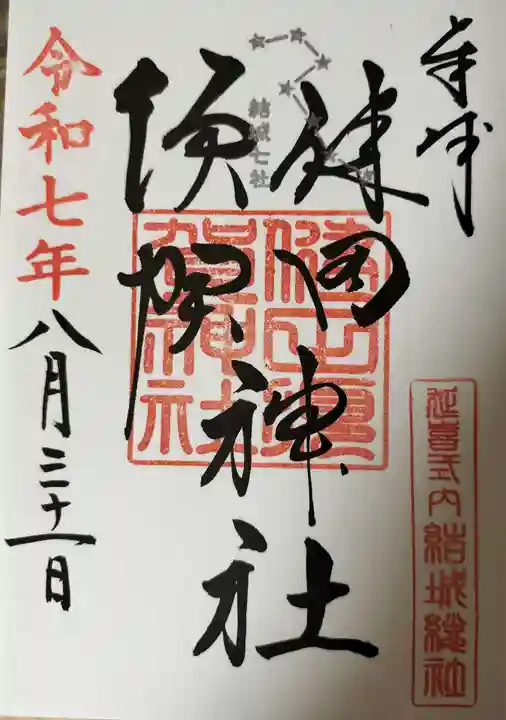 奉拝
健田神社
須賀神社
結城七社
健田須
賀神社
延喜式内結城総社
令和七年八月三十一日